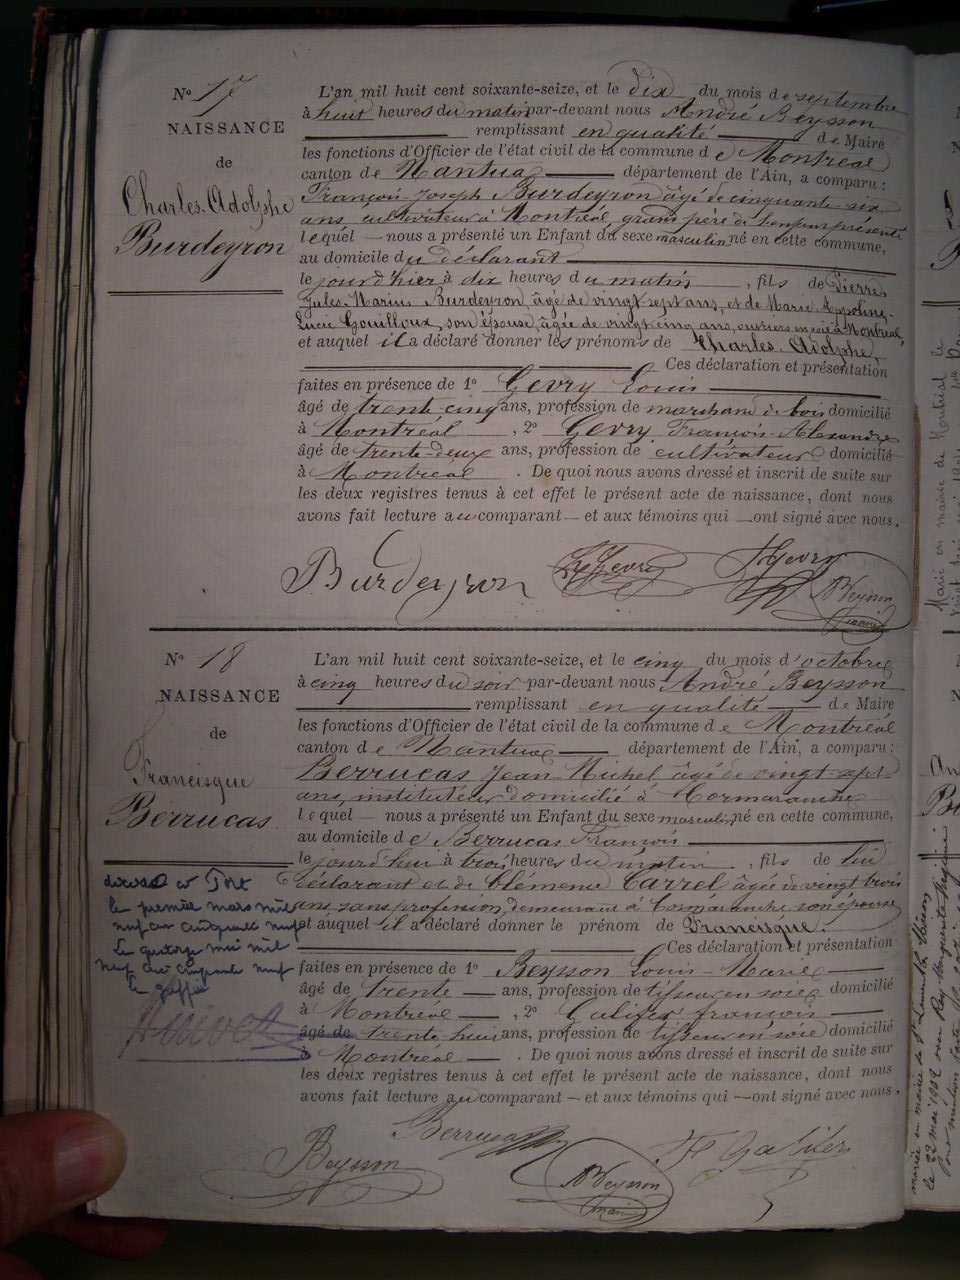 N° 17
NAISSANCE
de
Charles-Adolphe
Burdeyron
L'an mil huit cent soixante-seize, et le dix du mois de septembre
à huit heures du matin par-devant nous André Beysson
remplissant en qualité de Maire
les fonctions d'Officier de l'état civil de la commune de Montréal
canton de Nantua département de l'Ain, a comparu :
François Joseph Burdeyron âgé de cinquante-six
ans, cultivateur à Montréal, grand père de l'enfant présenté
lequel nous a présenté un Enfant du sexe masculin né en cette commune,
au domicile du déclarant
le jourd'hier à dix heures du matin, fils de Pierre
Jules-Marius Burdeyron, âgé de vingt sept ans, et de Marie Appoline-
Lucie Gouilloux, son épouse, âgée de vingt cinq ans, ouvriers en soie à Montréal,
et auquel il a déclaré donner les prénoms de Charles-Adolphe.
Ces déclaration et présentation
faites en présence de 1° Gevry Louis
âgé de trente-cinq ans, profession de marchand de bois domicilié
à Montréal, 2° Gevry François-Alexandre
âgé de trente-deux ans, profession de cultivateur domicilié
à Montréal. De quoi nous avons dressé et inscrit de suite sur
les deux registres tenus à cet effet le présent acte de naissance, dont nous
avons fait lecture au comparant et aux témoins qui ont signé avec nous.
Burdeyron Gevry Gevry
ABeysson
maire
N° 18
NAISSANCE
de
Francisque
Berrucas
L'an mil huit cent soixante-seize, et le cinq du mois d'octobre
à cinq heures du soir par-devant nous André Beysson
remplissant en qualité de Maire
les fonctions d'Officier de l'état civil de la commune de Montréal
canton de Nantua département de l'Ain, a comparu :
Berrucas Jean Michel âgé de vingt-sept
ans, instituteur domicilié à Cormaranche
lequel nous a présenté un Enfant du sexe masculin, né en cette commune,
au domicile de Berrucas François
le jourd'hui à trois heures du matin, fils de lui
déclarant et de Clémence Carrel âgée de vingt trois
ans, sans profession, demeurant à Cormaranche, son épouse
et auquel il a déclaré donner le prénom de Francisque.
Ces déclaration et présentation
faites en présence de 1° Beysson Louis-Marie
âgé de trente ans, profession de tisseur en soie domicilié
à Montréal, 2° Galifer françois
âgé de trente huit ans, profession de tisseur en soie domicilié
à Montréal. De quoi nous avons dressé et inscrit de suite sur
les deux registres tenus à cet effet le présent acte de naissance, dont nous
avons fait lecture au comparant et aux témoins qui ont signé avec nous.
le premier mars mil
neuf cent cinquante neuf
Le quatorze mai mil
neuf cent cinquante neuf
le greffier
Berrucas
Beysson
ABeysson
maire
Marié en mairie de Montréal le
le 22 mai 1902